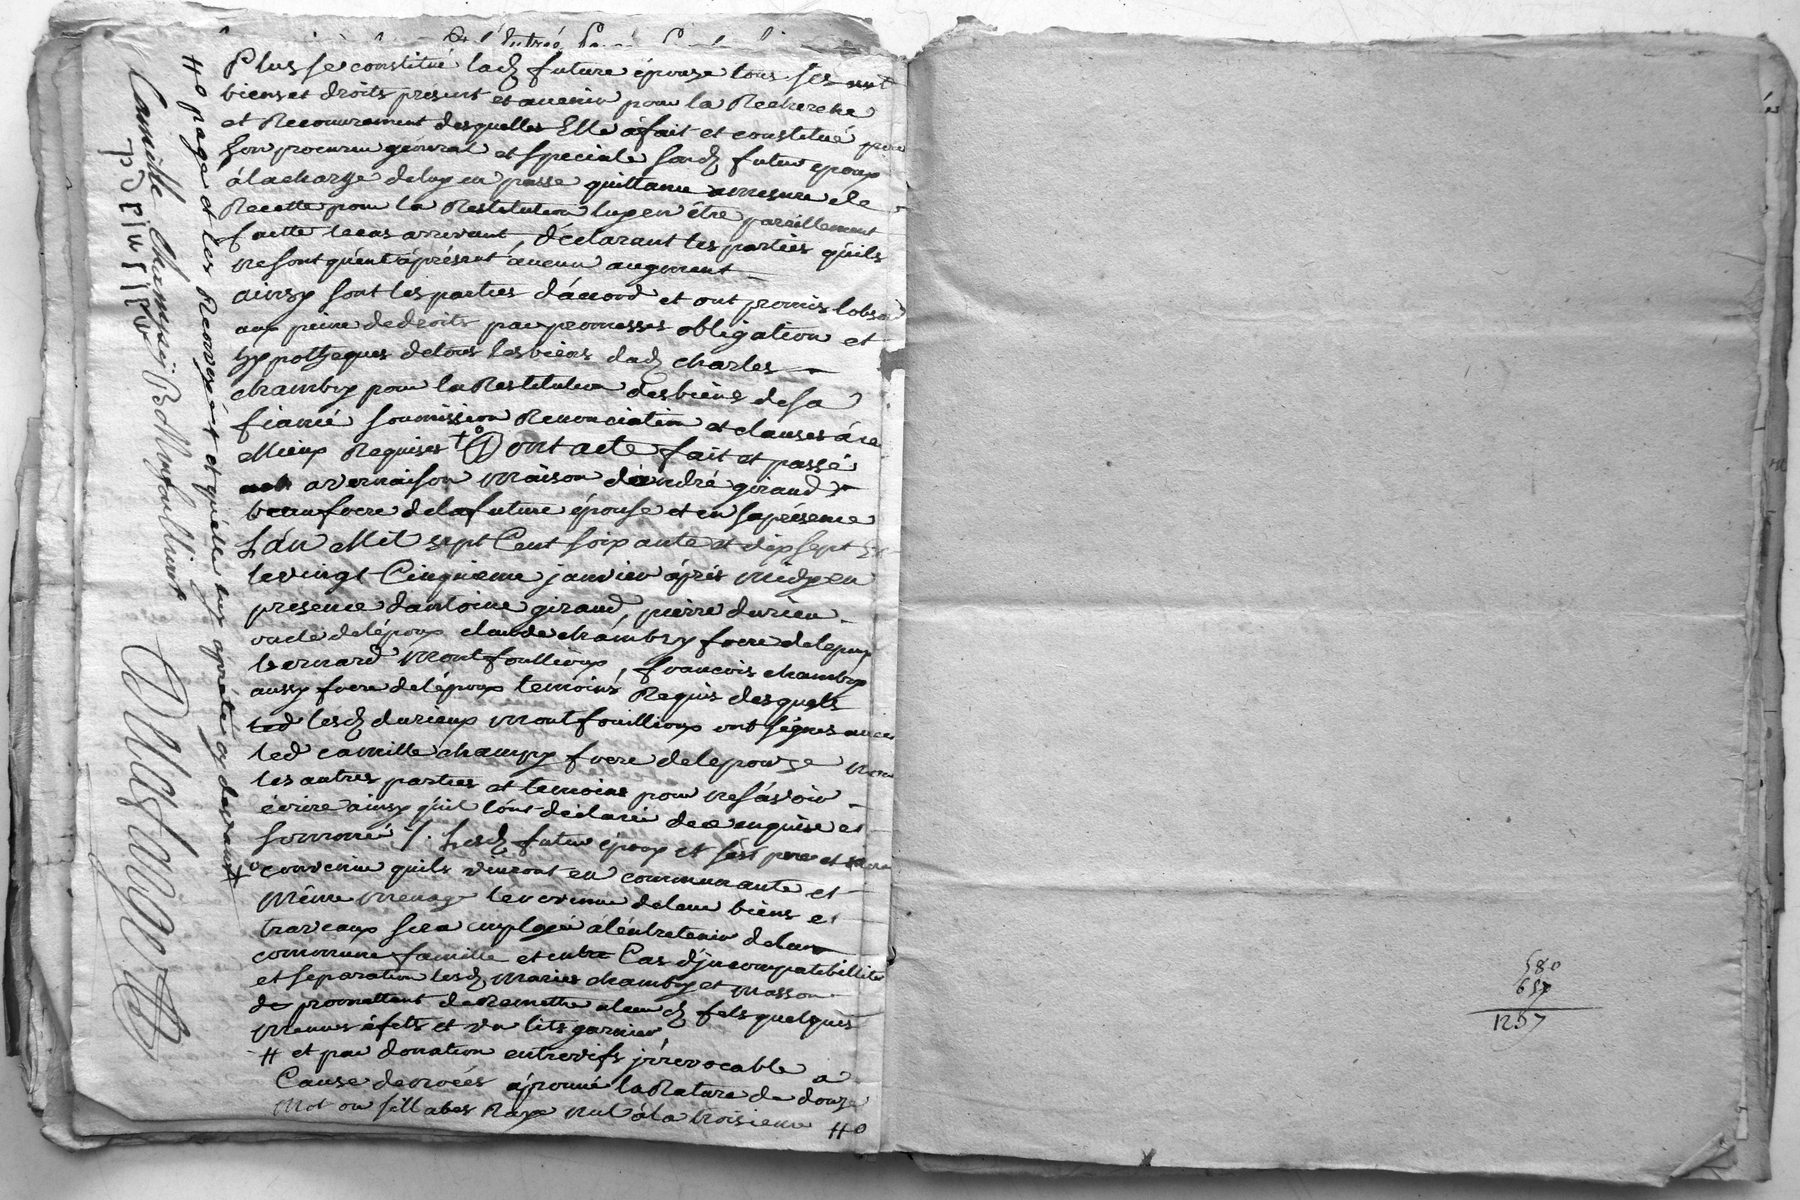 Plus se constitué lad future épouze tous ses
biens et droits présents et avenir pour la Recherche
et Recouvrement desquelles Elle a fait et constitué pour
son procureur général et speciale sond futur epoux
à la charge deluy en passé quittance amesure de
Recette pour la Restitution luy en être pareillement
faitte lecas arrivant, déclarant les parties qu'ils
ne sont quént àprésent áucun augment
ainsy sont les parties dáccord et ont promis lobser
aux peine dedroits par promesses obligation et
hypotheques detous les biens dud charles
chambry pour la Restitution des biens de sa
fiancé soumission Renonciation et clauses à ce
Mieux Requises + Dont acte fait et passé
a vernaison maison dándré giraud
beaufrere dela future épouse et en saprésence
Lan Mil sept Cent soixante et dixsept
le vingt Cinquieme janvier áprés midy en
presence dantoine giraud, pierre durieu
oncle delépoux claude chámbry frere delepoux
bernard Montfoullioux, francois chambry
aussy frere delépoux temoins Requis desquels
lesd durieux Montfouillioux ont signés avec
led camille champy frere delepouze non
les autres parties et temoins pour ne sávoir
écrire ainsy quil lont déclaré de ce enquise et
sommé /. Lesd futur époux et ses pere et mere
convenu quils vivront en communauté et
même menage le revenue de leur biens et
travaux sera employé alentretenir de leur
commune famille et entre Cas d'jncompatibillité
et separation lesd Mariés chambry et Masson
de promettent de Remettre a leurd fils quelques
menus éfets et un lits garnier
# et par donation entrevifs jrrevocable a
Cause denoces áprouvé la Rature de douze
Mot ou sillabes Raye nul á la troisieme #o
#o page et les Renvoyé et quélle luy aprête cy devant
Camille Champy B Montfoulliouxt
durieux
580
657
1237